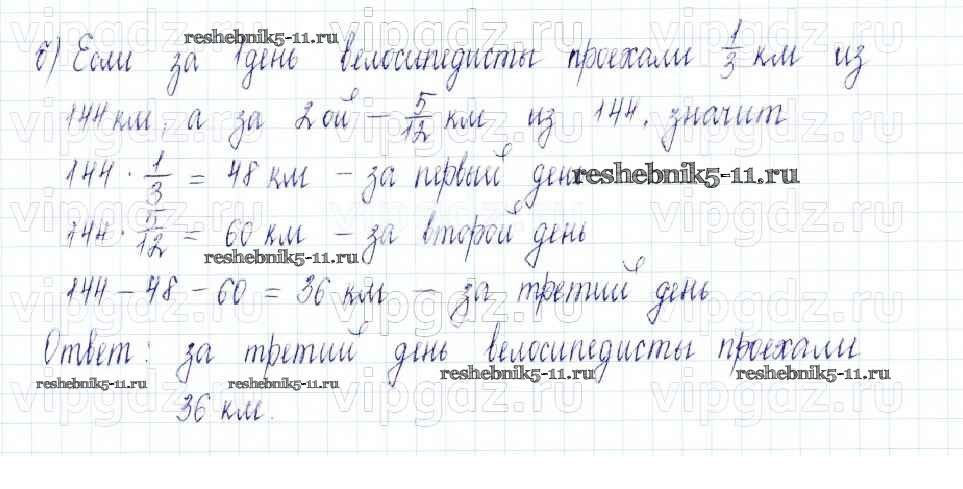 reshebnik5-11.ru
б) Если за 1день велосипедисты проехали 1/3 км из
144 км, а за 2ой – 5/12 км из 144, значит
144 · 1/3 = 48 км – за первый день
reshebnik5-11.ru
144 · 5/12 = 60 км – за второй день
reshebnik5-11.ru
144 – 48 – 60 = 36 км – за третий день
Ответ: за третий день велосипедисты проехали
reshebnik5-11.ru reshebnik5-11.ru reshebnik5-11.ru reshebnik5-11.ru
36 км.
vipgdz.ru